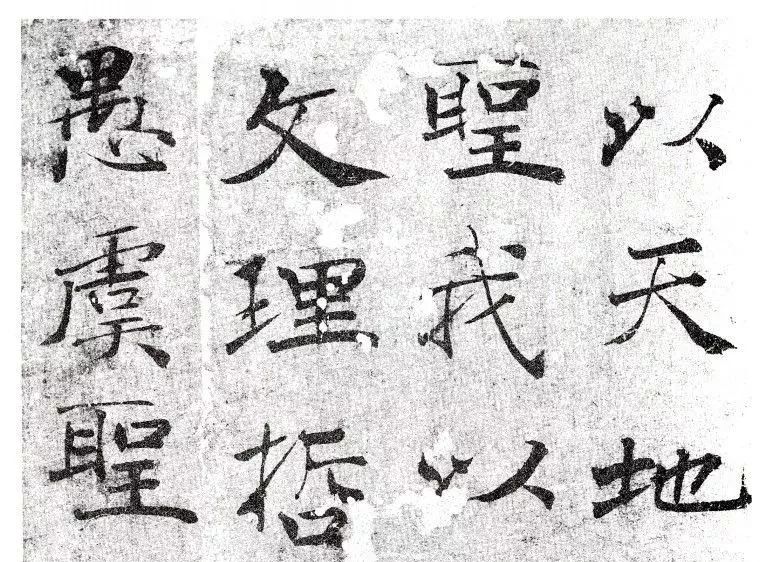 以天地
聖我以
文理哲
愚虞聖